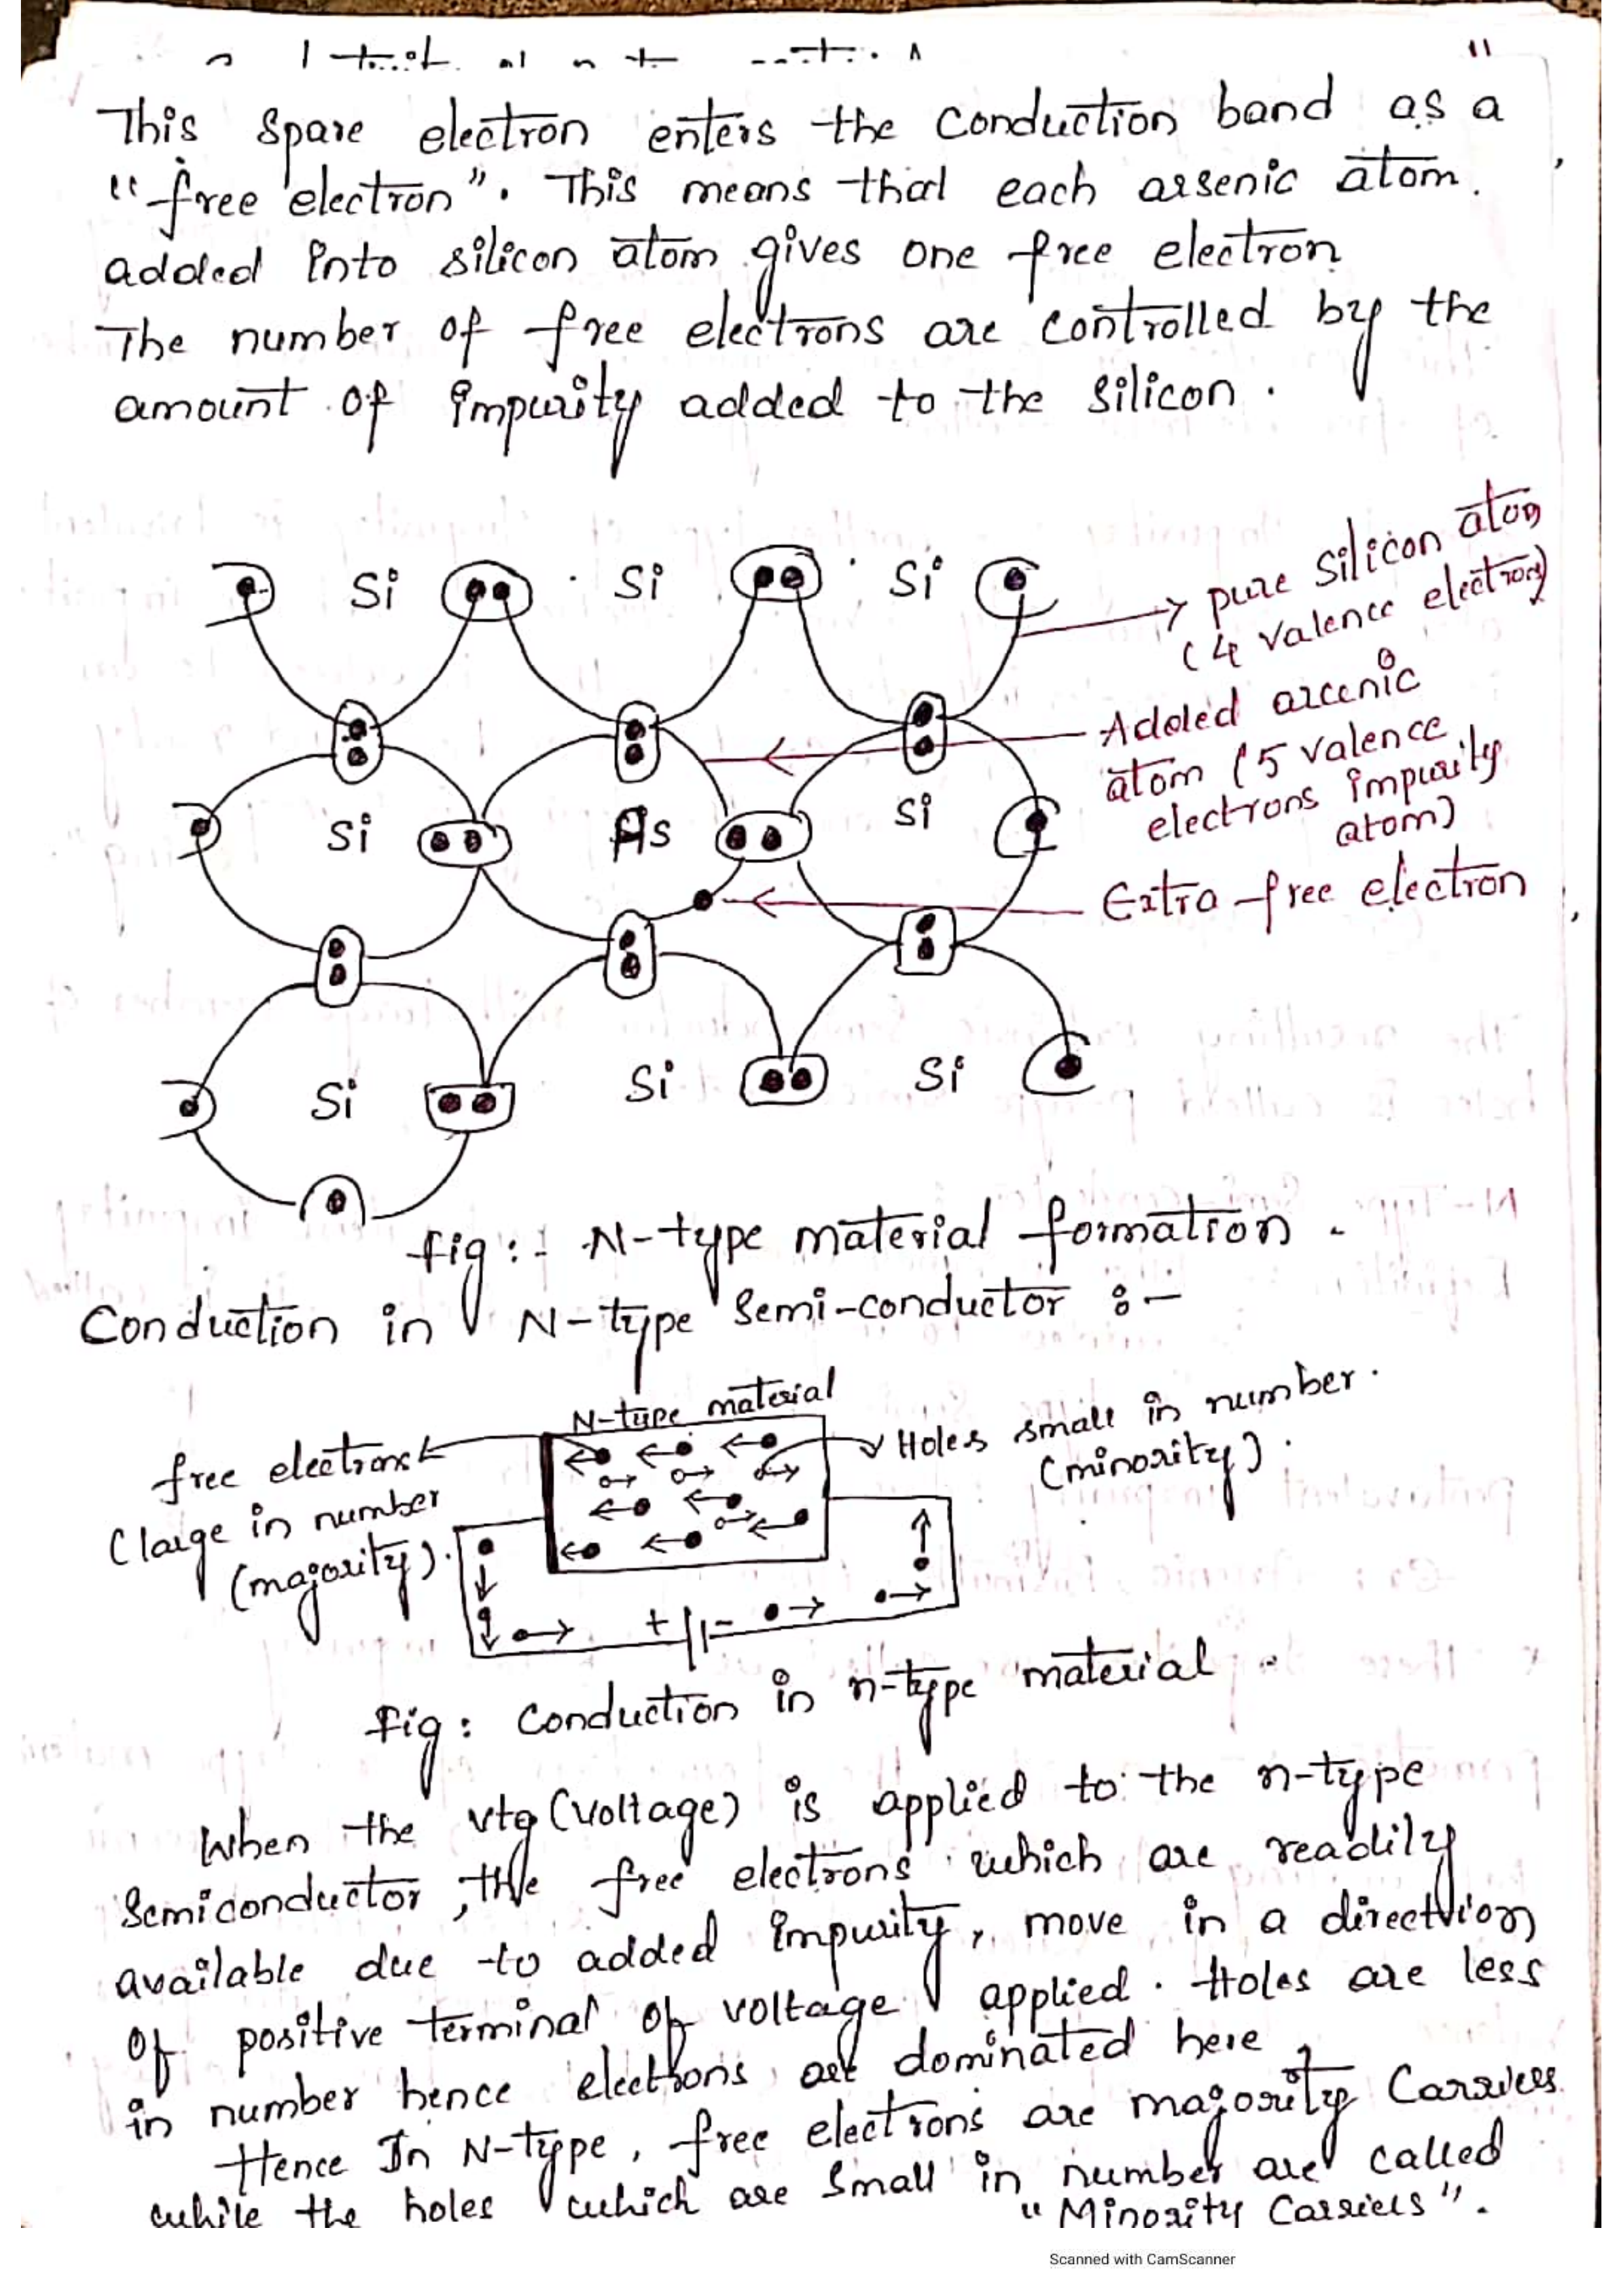 11
This spare electron enters the conduction band as a
"free electron". This means that each arsenic atom.
added into silicon atom gives one free electron
The number of free electrons are controlled by the
amount of impurity added to the silicon.
Si Si Si
pure silicon atom
(4 valence electrons)
Added arcenic
atom (5 valence
electrons impurity
atom)
Si As Si
Extra free electron
Si Si Si
fig:- N-type material formation.
Conduction in N-type Semi-conductor :-
N-type material
free electrons
(large in number
(majority).
Holes small in number.
(minority).
+ -
fig: Conduction in n-type material.
When the vtg (voltage) is applied to the n-type
Semiconductor, the free electrons which are readily
available due to added impurity, move in a direction
of positive terminal of voltage applied. Holes are less
in number hence electrons are dominated here,
Hence In N-type, free electrons are majority Carriers
while the holes which are small in number are called
"Minority Carriers".
Scanned with CamScanner